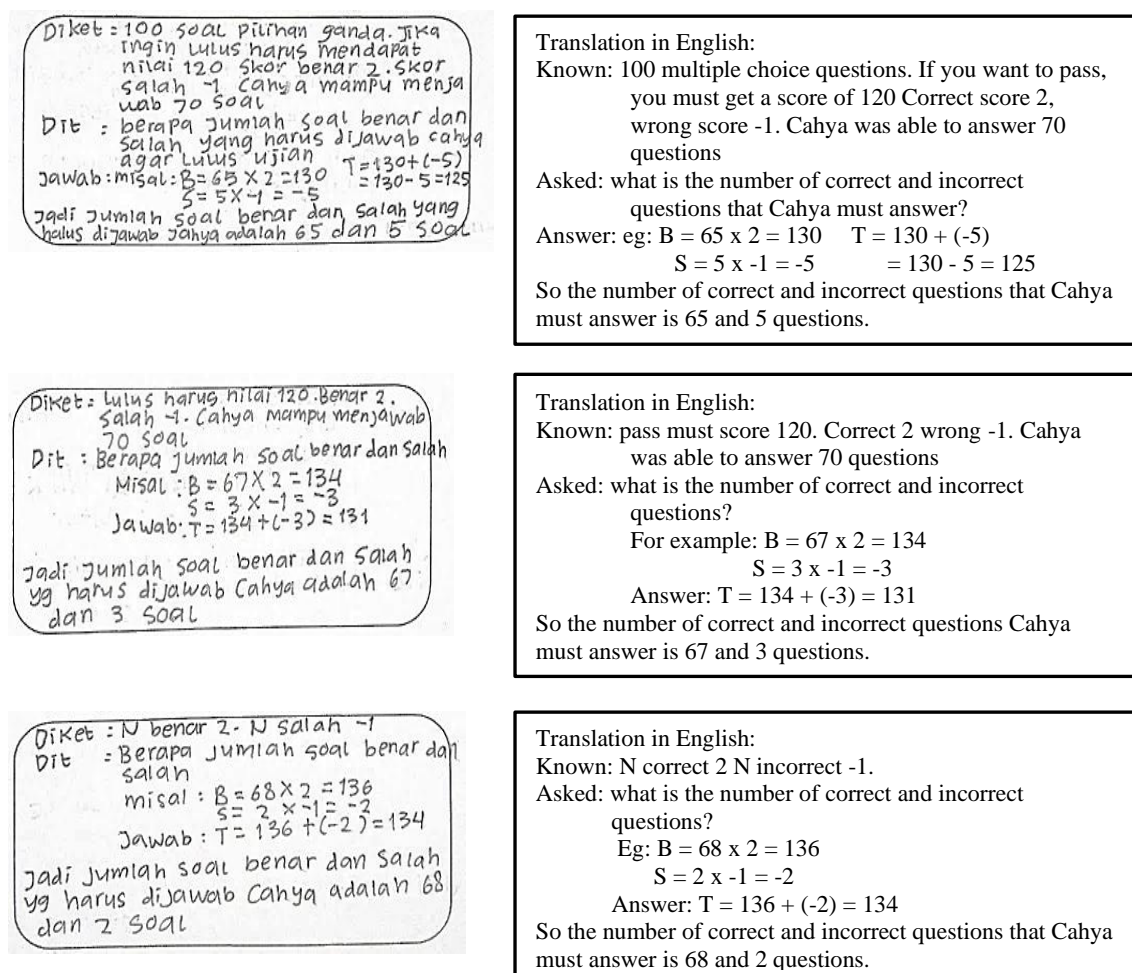 Diket : 100 soal pilihan ganda. Jika
ingin lulus harus mendapat
nilai 120 skor benar 2. skor
salah -1 Cahya mampu menja
wab 70 soal
Dit : berapa jumlah soal benar dan
salah yang harus dijawab cahya
agar lulus ujian
Jawab : misal : B = 65 x 2 = 130 T = 130 + (-5)
S = 5 x -1 = -5 = 130 - 5 = 125
Jadi jumlah soal benar dan salah yang
halus dijawab Jahya adalah 65 dan 5 soal
Translation in English:
Known: 100 multiple choice questions. If you want to pass,
you must get a score of 120 Correct score 2,
wrong score -1. Cahya was able to answer 70
questions
Asked: what is the number of correct and incorrect
questions that Cahya must answer?
Answer: eg: B = 65 x 2 = 130 T = 130 + (-5)
S = 5 x -1 = -5 = 130 - 5 = 125
So the number of correct and incorrect questions that Cahya
must answer is 65 and 5 questions.
Diket : Lulus harus nilai 120. Benar 2.
Salah -1. Cahya mampu menjawab
70 soal
Dit : Berapa jumlah soal benar dan salah
Misal : B = 67 x 2 = 134
S = 3 x -1 = -3
Jawab : T = 134 + (-3) = 131
Jadi jumlah soal benar dan salah
yg harus dijawab Cahya adalah 67
dan 3 soal
Translation in English:
Known: pass must score 120. Correct 2 wrong -1. Cahya
was able to answer 70 questions
Asked: what is the number of correct and incorrect
questions?
For example: B = 67 x 2 = 134
S = 3 x -1 = -3
Answer: T = 134 + (-3) = 131
So the number of correct and incorrect questions Cahya
must answer is 67 and 3 questions.
Diket : N benar 2. N salah -1
Dit : Berapa jumlah soal benar dan
salah
misal : B = 68 x 2 = 136
S = 2 x -1 = -2
Jawab : T = 136 + (-2) = 134
Jadi jumlah soal benar dan salah
yg harus dijawab Cahya adalah 68
dan 2 soal
Translation in English:
Known: N correct 2 N incorrect -1.
Asked: what is the number of correct and incorrect
questions?
Eg: B = 68 x 2 = 136
S = 2 x -1 = -2
Answer: T = 136 + (-2) = 134
So the number of correct and incorrect questions that Cahya
must answer is 68 and 2 questions.